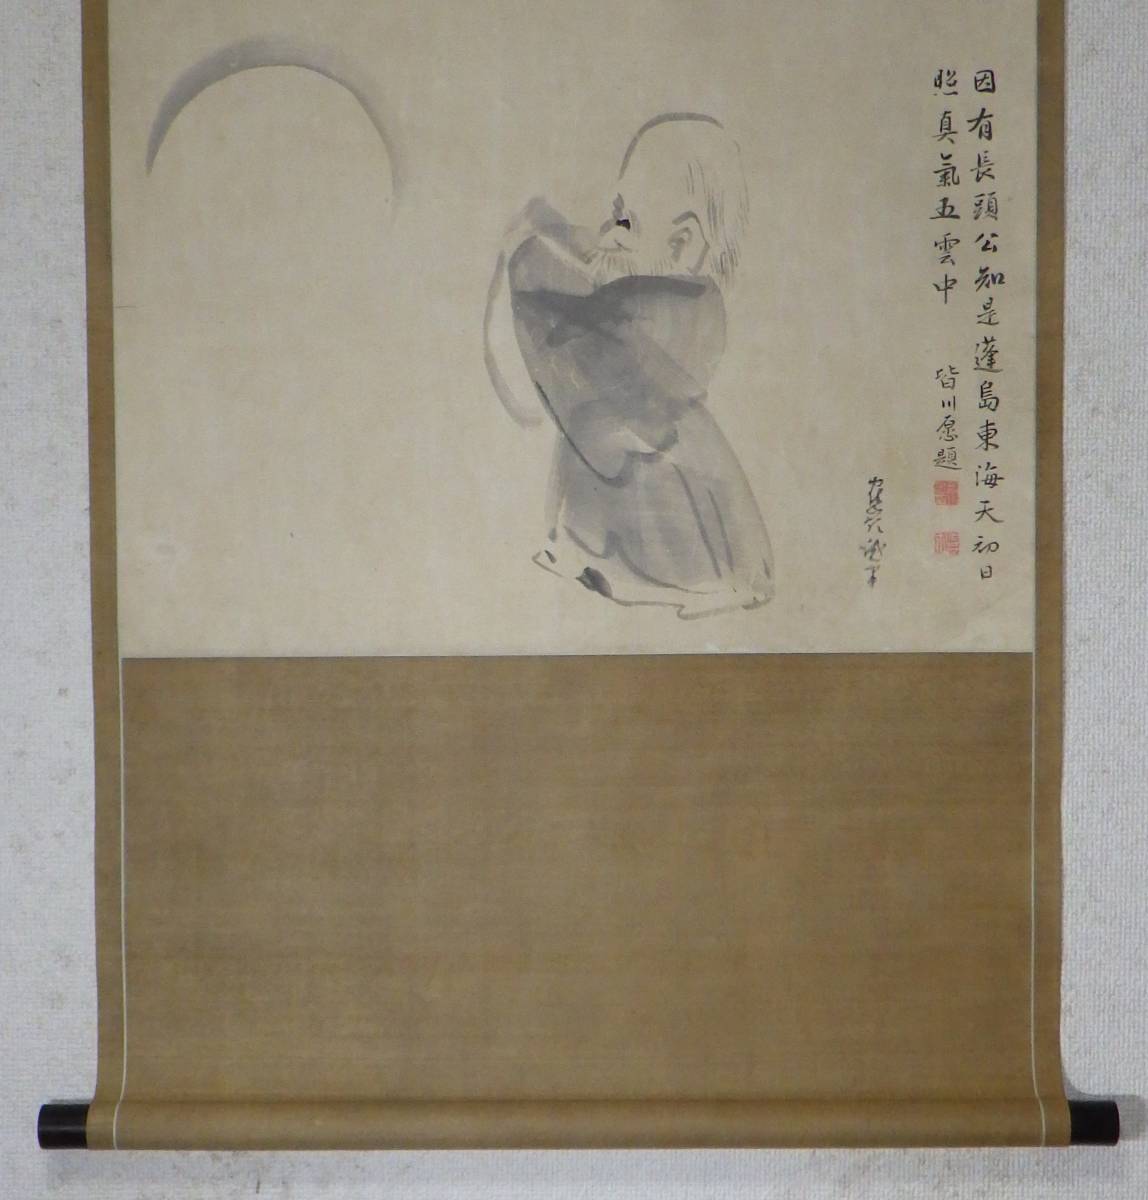 因有長頭公知是蓬島東海天初日
照真氣五雲中
皆川愿題